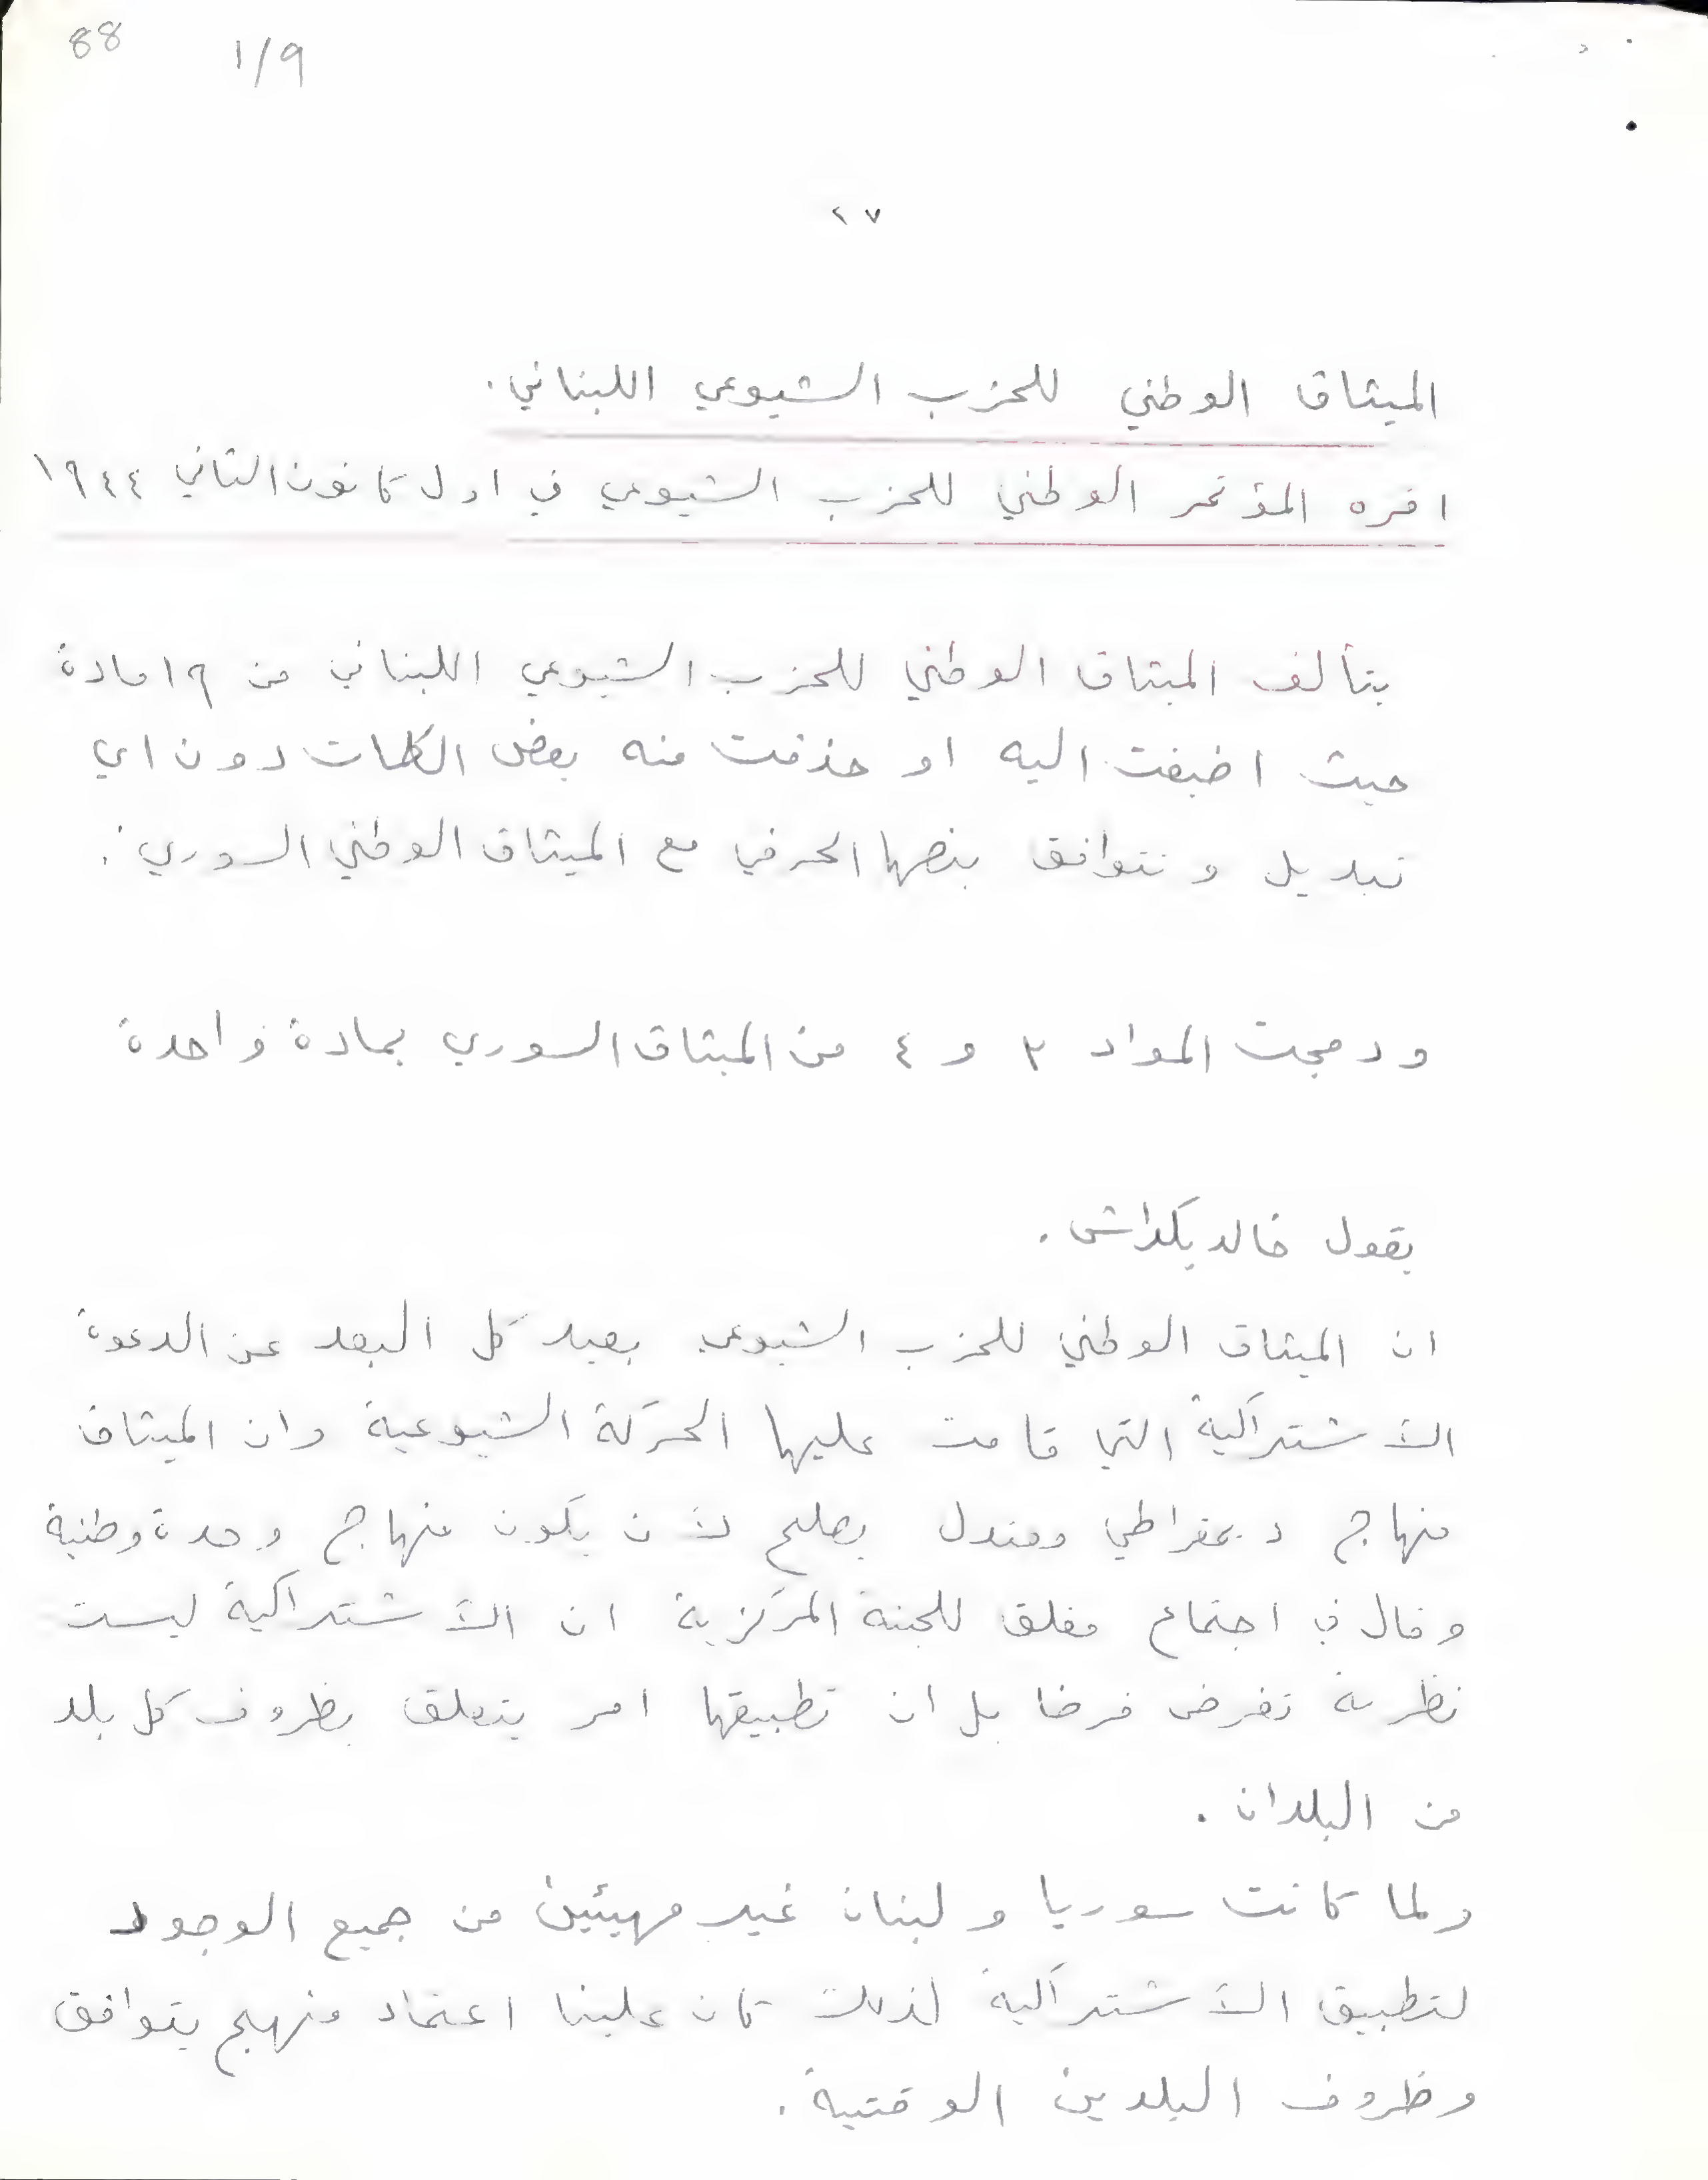 88
1/9
٢٧
الميثاق الوطني للحزب الشيوعي اللبناني.
اقره المؤتمر الوطني للحزب الشيوعي في اول كانون الثاني ١٩٤٤
يتألف الميثاق الوطني للحزب الشيوعي اللبناني من ١٩ مادة
حيث اضيفت اليه او حذفت منه بعض الكلمات دون اي
تبديل وتتوافق بنصها الحرفي مع الميثاق الوطني السوري.
ودمجت المواد ٣ و ٤ من الميثاق السوري بمادة واحدة
يقول خالد بكداش.
ان الميثاق الوطني للحزب الشيوعي بعيد كل البعد عن الدعوة
الاشتراكية التي قامت عليها الحركة الشيوعية وان الميثاق
منهاج ديمقراطي ومعتدل يصلح لأن يكون منهاج وحدة وطنية
وقال في اجتماع مغلق للجنة المركزية ان الاشتراكية ليست
نظرية تفرض فرضا بل ان تطبيقها امر يتعلق بظروف كل بلد
من البلدان.
ولما كانت سوريا ولبنان غير مهيئين من جميع الوجود
لتطبيق الاشتراكية لذلك كان علينا اعتماد منهج يتوافق
وظروف البلدين الوقتية.